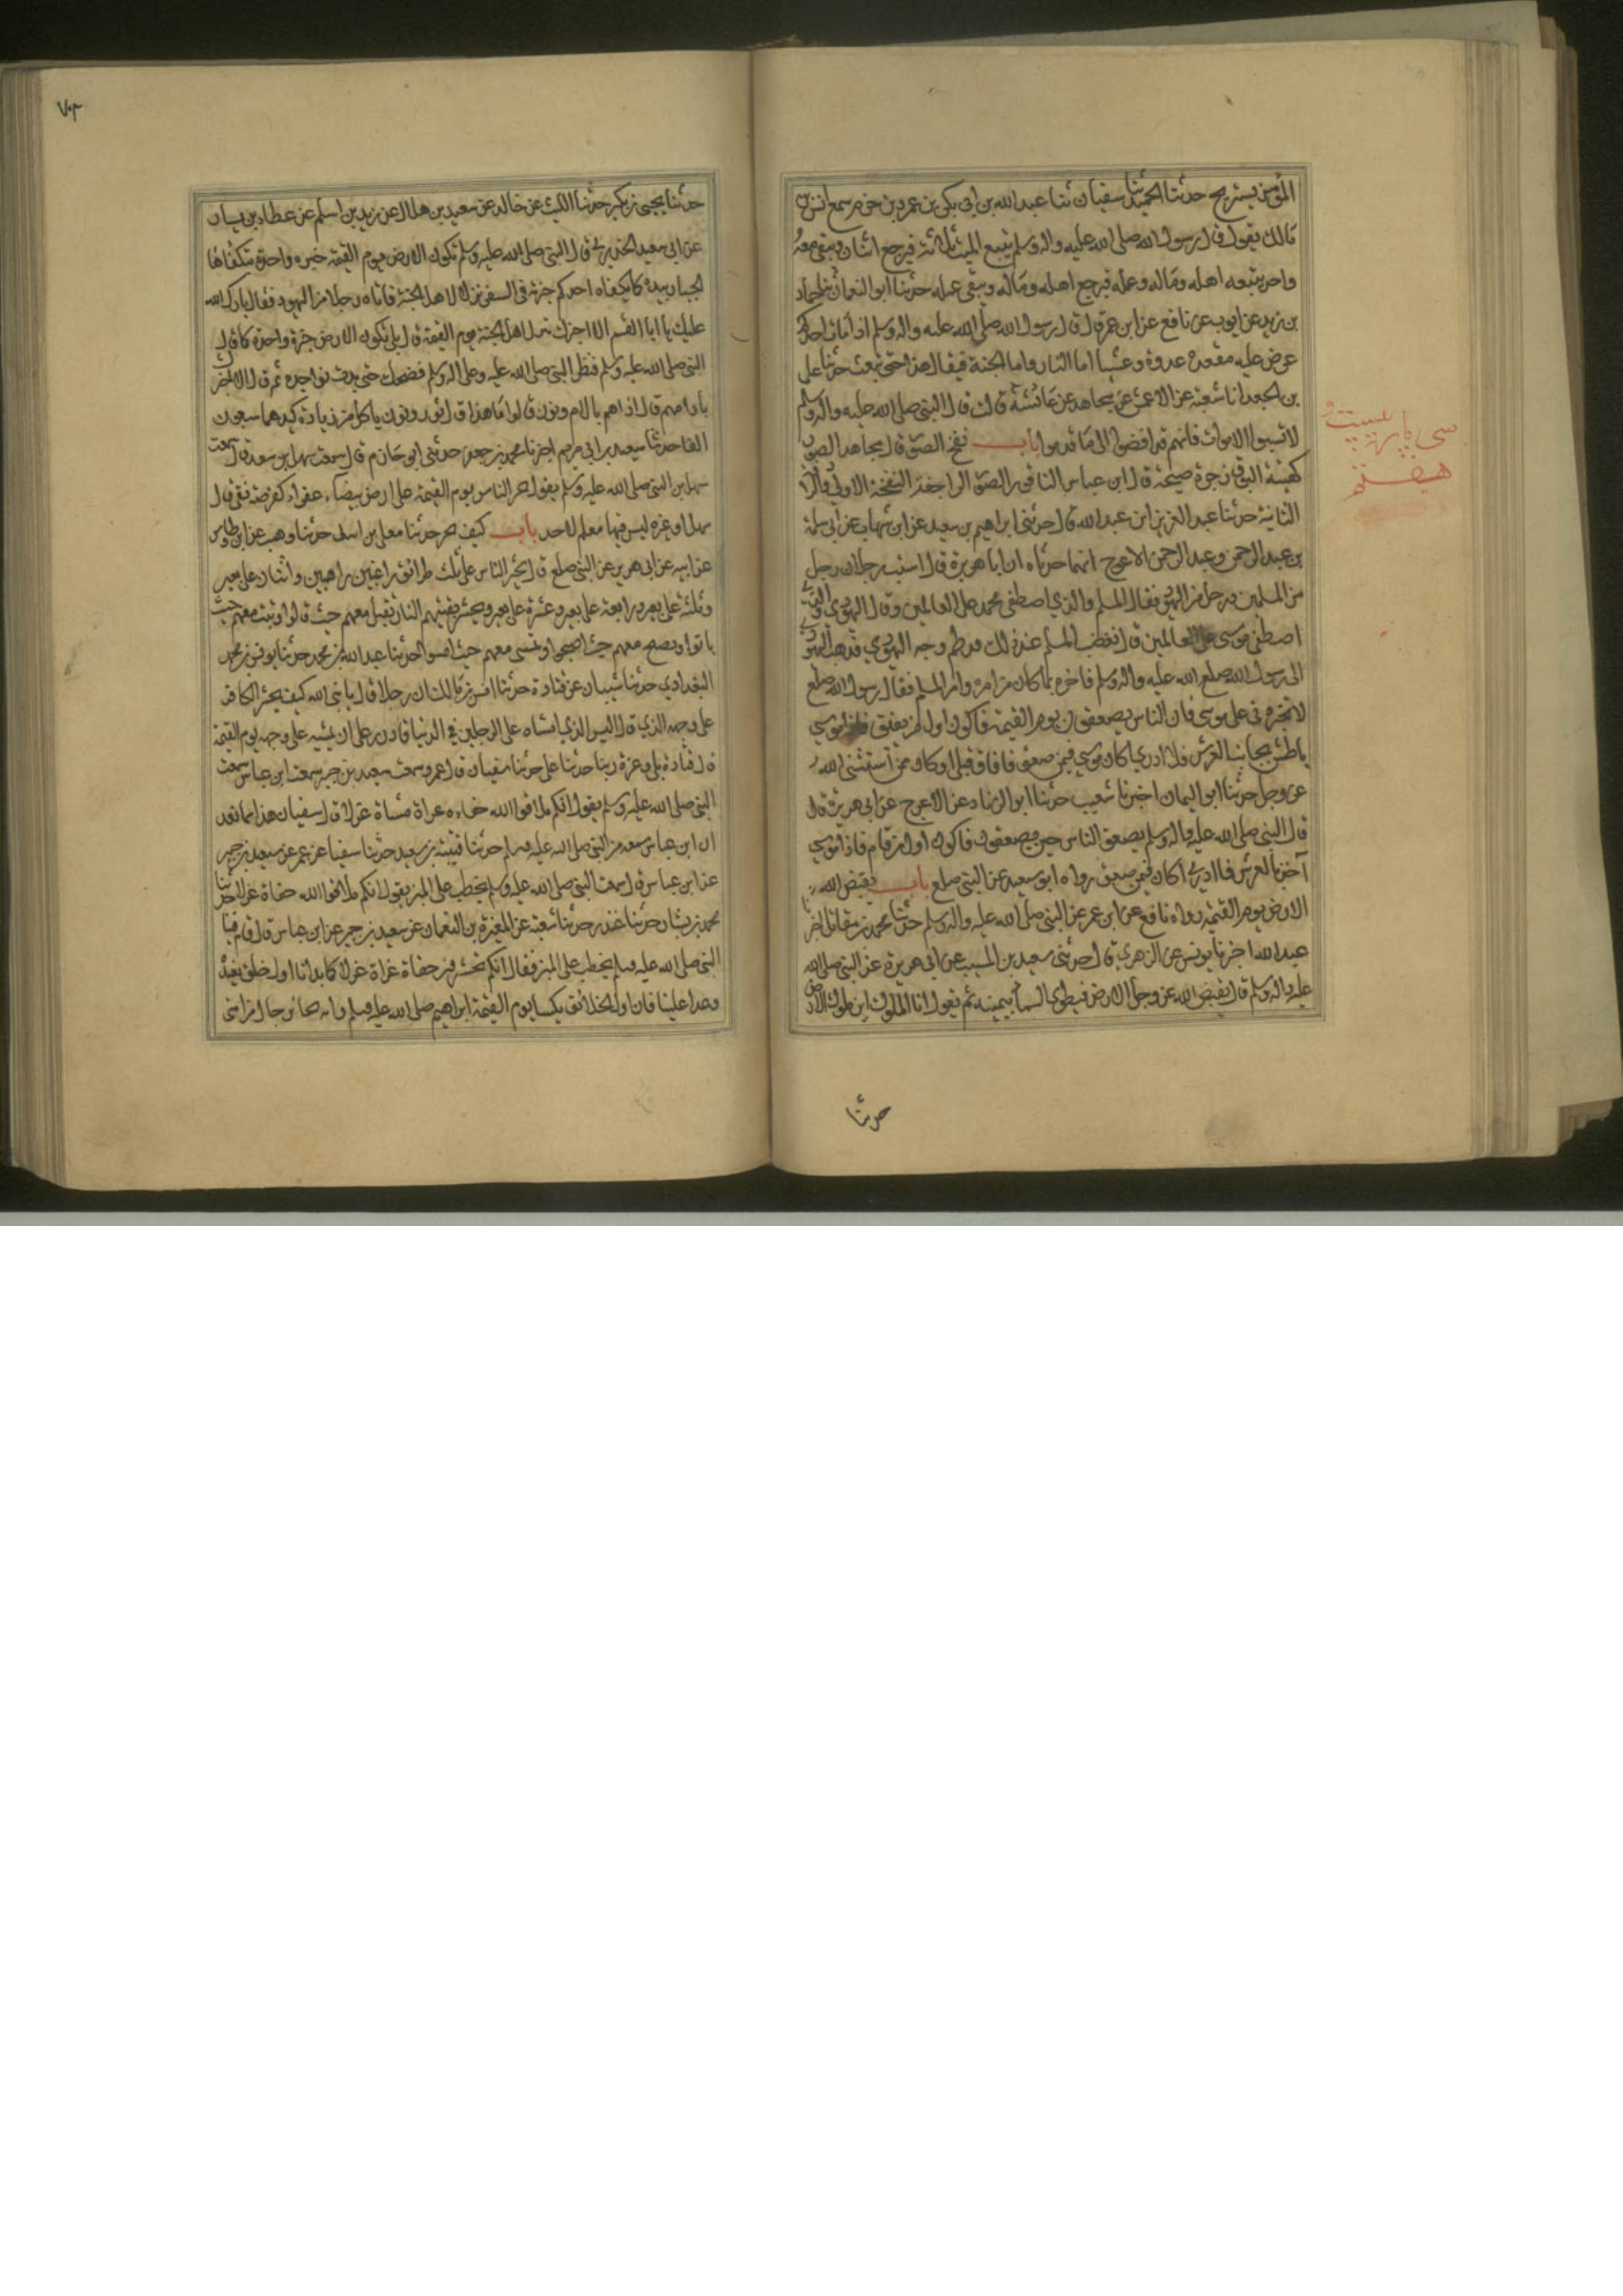 المؤمن يستريح حدثنا الحميدي ثنا سفيان ثنا عبدالله بن ابي بكر بن عمرو بن حزم سمع انس بن
مالك يقول قال رسول الله صلى الله عليه واله وسلم يتبع الميت ثلاثة فيرجع اثنان ويبقى معه
واحد يتبعه اهله وماله وعمله فيرجع اهله وماله ويبقى عمله حدثنا ابو النعمان ثنا حماد
بن زيد عن ايوب عن نافع عن ابن عمر قال قال رسول الله صلى الله عليه واله وسلم اذا مات احدكم
عرض عليه مقعده غدوة وعشيا اما النار واما الجنة فيقال هذا حتى تبعث حدثنا على
بن الجعد انا شعبة عن الاعمش عن مجاهد عن عائشة قالت قال النبي صلى الله عليه واله وسلم
لا تسبوا الاموات فانهم قد افضوا الى ما قدموا باب نفخ الصور قال مجاهد الصور
كهيئة البوق زجرة صيحة قال ابن عباس الناقور الصور الراجفة النفخة الاولى والرادفة
الثانية حدثنا عبد العزيز ابن عبدالله قال حدثني ابراهيم بن سعيد عن ابن شهاب عن ابي سلمة
بن عبد الرحمن وعبد الرحمن الاعرج انهما حدثاه ان ابا هريرة قال استب رجلان رجل
من المسلمين ورجل من اليهود فقال المسلم والذي اصطفى محمد على العالمين وقال اليهودي والذي
اصطفى موسى على العالمين قال فغضب المسلم عند ذلك فلطم وجه اليهودي فذهب اليهودي
الى رسول الله صلعم الله عليه واله وسلم فاخبره بما كان من امره وامر المسلم فقال رسول الله صلعم
لا تخيروني على موسى فان الناس يصعقون يوم القيمة فاكون اول من يفيق فاذا موسى
باطش بجانب العرش فلا ادري اكان موسى فيمن صعق فافاق قبلي او كان ممن استثنى الله
عز وجل حدثنا ابو اليمان اخبرنا شعيب حدثنا ابو الزناد عن الاعرج عن ابي هريرة قال
قال النبي صلى الله عليه واله وسلم يصعق الناس حين يصعقون فاكون اول من قام فاذا موسى
آخذ بالعرش فما ادري اكان فيمن صعق رواه ابو سعيد عن النبي صلعم باب يقبض الله
الارض يوم القيمة رواه نافع عن ابن عمر عن النبي صلى الله عليه واله وسلم حدثنا محمد بن مقاتل اخبرنا
عبد الله اخبرنا يونس عن الزهري قال حدثني سعيد بن المسيب عن ابي هريرة عن النبي صلى الله
عليه واله وسلم قال يقبض الله عز وجل الارض فيطوي السما بيمينه ثم يقول انا الملك اين ملوك الارض
حدثنا
سى پاره بيست و
هفتم
٧٠٣
حدثنا يحيى بن بكير حدثنا الليث عن خالد عن سعيد بن هلال عن زيد بن اسلم عن عطاء بن يسار
عن ابي سعيد الخدري قال قال النبي صلى الله عليه وسلم تكون الارض يوم القيمة خبزه واحدة يتكفأها
الجبار بيده كما يكفاه احدكم خبزته في السفر نزلا لاهل الجنة فاتاه رجلا من اليهود فقال بارك الله
عليك يا ابا القسم الا اخبرك بنزل اهل الجنة يوم القيمة قال بلى تكون الارض خبزة واحدة كما قال
النبي صلى الله عليه وسلم فنظر النبي صلى الله عليه وعلى اله وسلم فضحك حتى بدت نواجده ثم قال الا اخبرك
بادامهم قال ادامهم بالام ونون قالوا ما هذا قال ثور ونون ياكل من زيادة كبدهما سبعون
الفا حدثنا سعيد بن ابي مريم اخبرنا محمد بن جعفر حدثني ابو حازم قال سمعت سهل بن سعد قال سمعت
سهل بن النبي صلى الله عليه وسلم يقول يحشر الناس يوم القيمة على ارض بيضاء عفراء كقرصة نقي قال
سهل او غيره ليس فيها معلم لاحد باب كيف الحشر حدثنا معلى بن اسد حدثنا وهيب عن ابن طاوس
عن ابيه عن ابي هريرة عن النبي صلعم قال يحشر الناس على ثلث طرائق راغبين راهبين واثنان على بعير
وثلثة على بعير واربعة على بعير وعشرة على بعير ويحشر بقيتهم النار تقيل معهم حيث قالوا وتبيت معهم حيث
باتوا وتصبح معهم حيث اصبحوا وتمسى معهم حيث امسوا حدثنا عبدالله بن محمد حدثنا يونس بن محمد
البغدادي حدثنا شيبان عن قتادة حدثنا انس بن مالك ان رجلا قال يا نبي الله كيف يحشر الكافر
على وجهه الذي قال اليس الذي امشاه على الرجلين في الدنيا قادر على ان يمشيه على وجهه يوم القيمة
قال قتادة بلى وعزة ربنا حدثنا على حدثنا سفيان قال عمرو سمعت سعيد بن جبير سمعت ابن عباس سمعت
النبي صلى الله عليه وسلم يقول انكم ملاقوا الله حفاه عراة مشاة غرلا قال سفيان هذا مما نعد
ان ابن عباس سمعه من النبي صلى الله عليه وسلم حدثنا قتيبة بن سعيد حدثنا سفيان عن عمرو عن سعيد بن جبير
عن ابن عباس قال سمعت النبي صلى الله عليه وسلم يخطب على المنبر يقول انكم ملاقوا الله حفاة غرلا حدثنا
محمد بن بشار حدثنا غندر حدثنا شعبة عن المغيرة بن النعمان عن سعيد بن جبير عن ابن عباس قال قام فينا
النبي صلى الله عليه وسلم يخطب على المنبر فقال انكم تحشرون حفاة عراة غرلا كما بدانا اول خلق نعيده
وعدا علينا فان اول الخلائق يكسا يوم القيمة ابراهيم صلى الله عليه وسلم وانه يجاء برجال من امتي